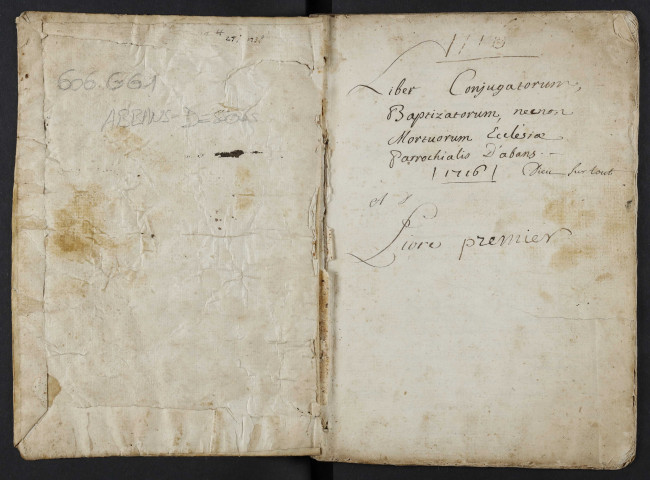 606.GG1
ARBANS-DESSOUS
Liber Conjugatorum,
Baptizatorum, necnon
Mortuorum Ecclesiæ
Parrochialis D'abans
1716 Dieu sur tout
Livre premier